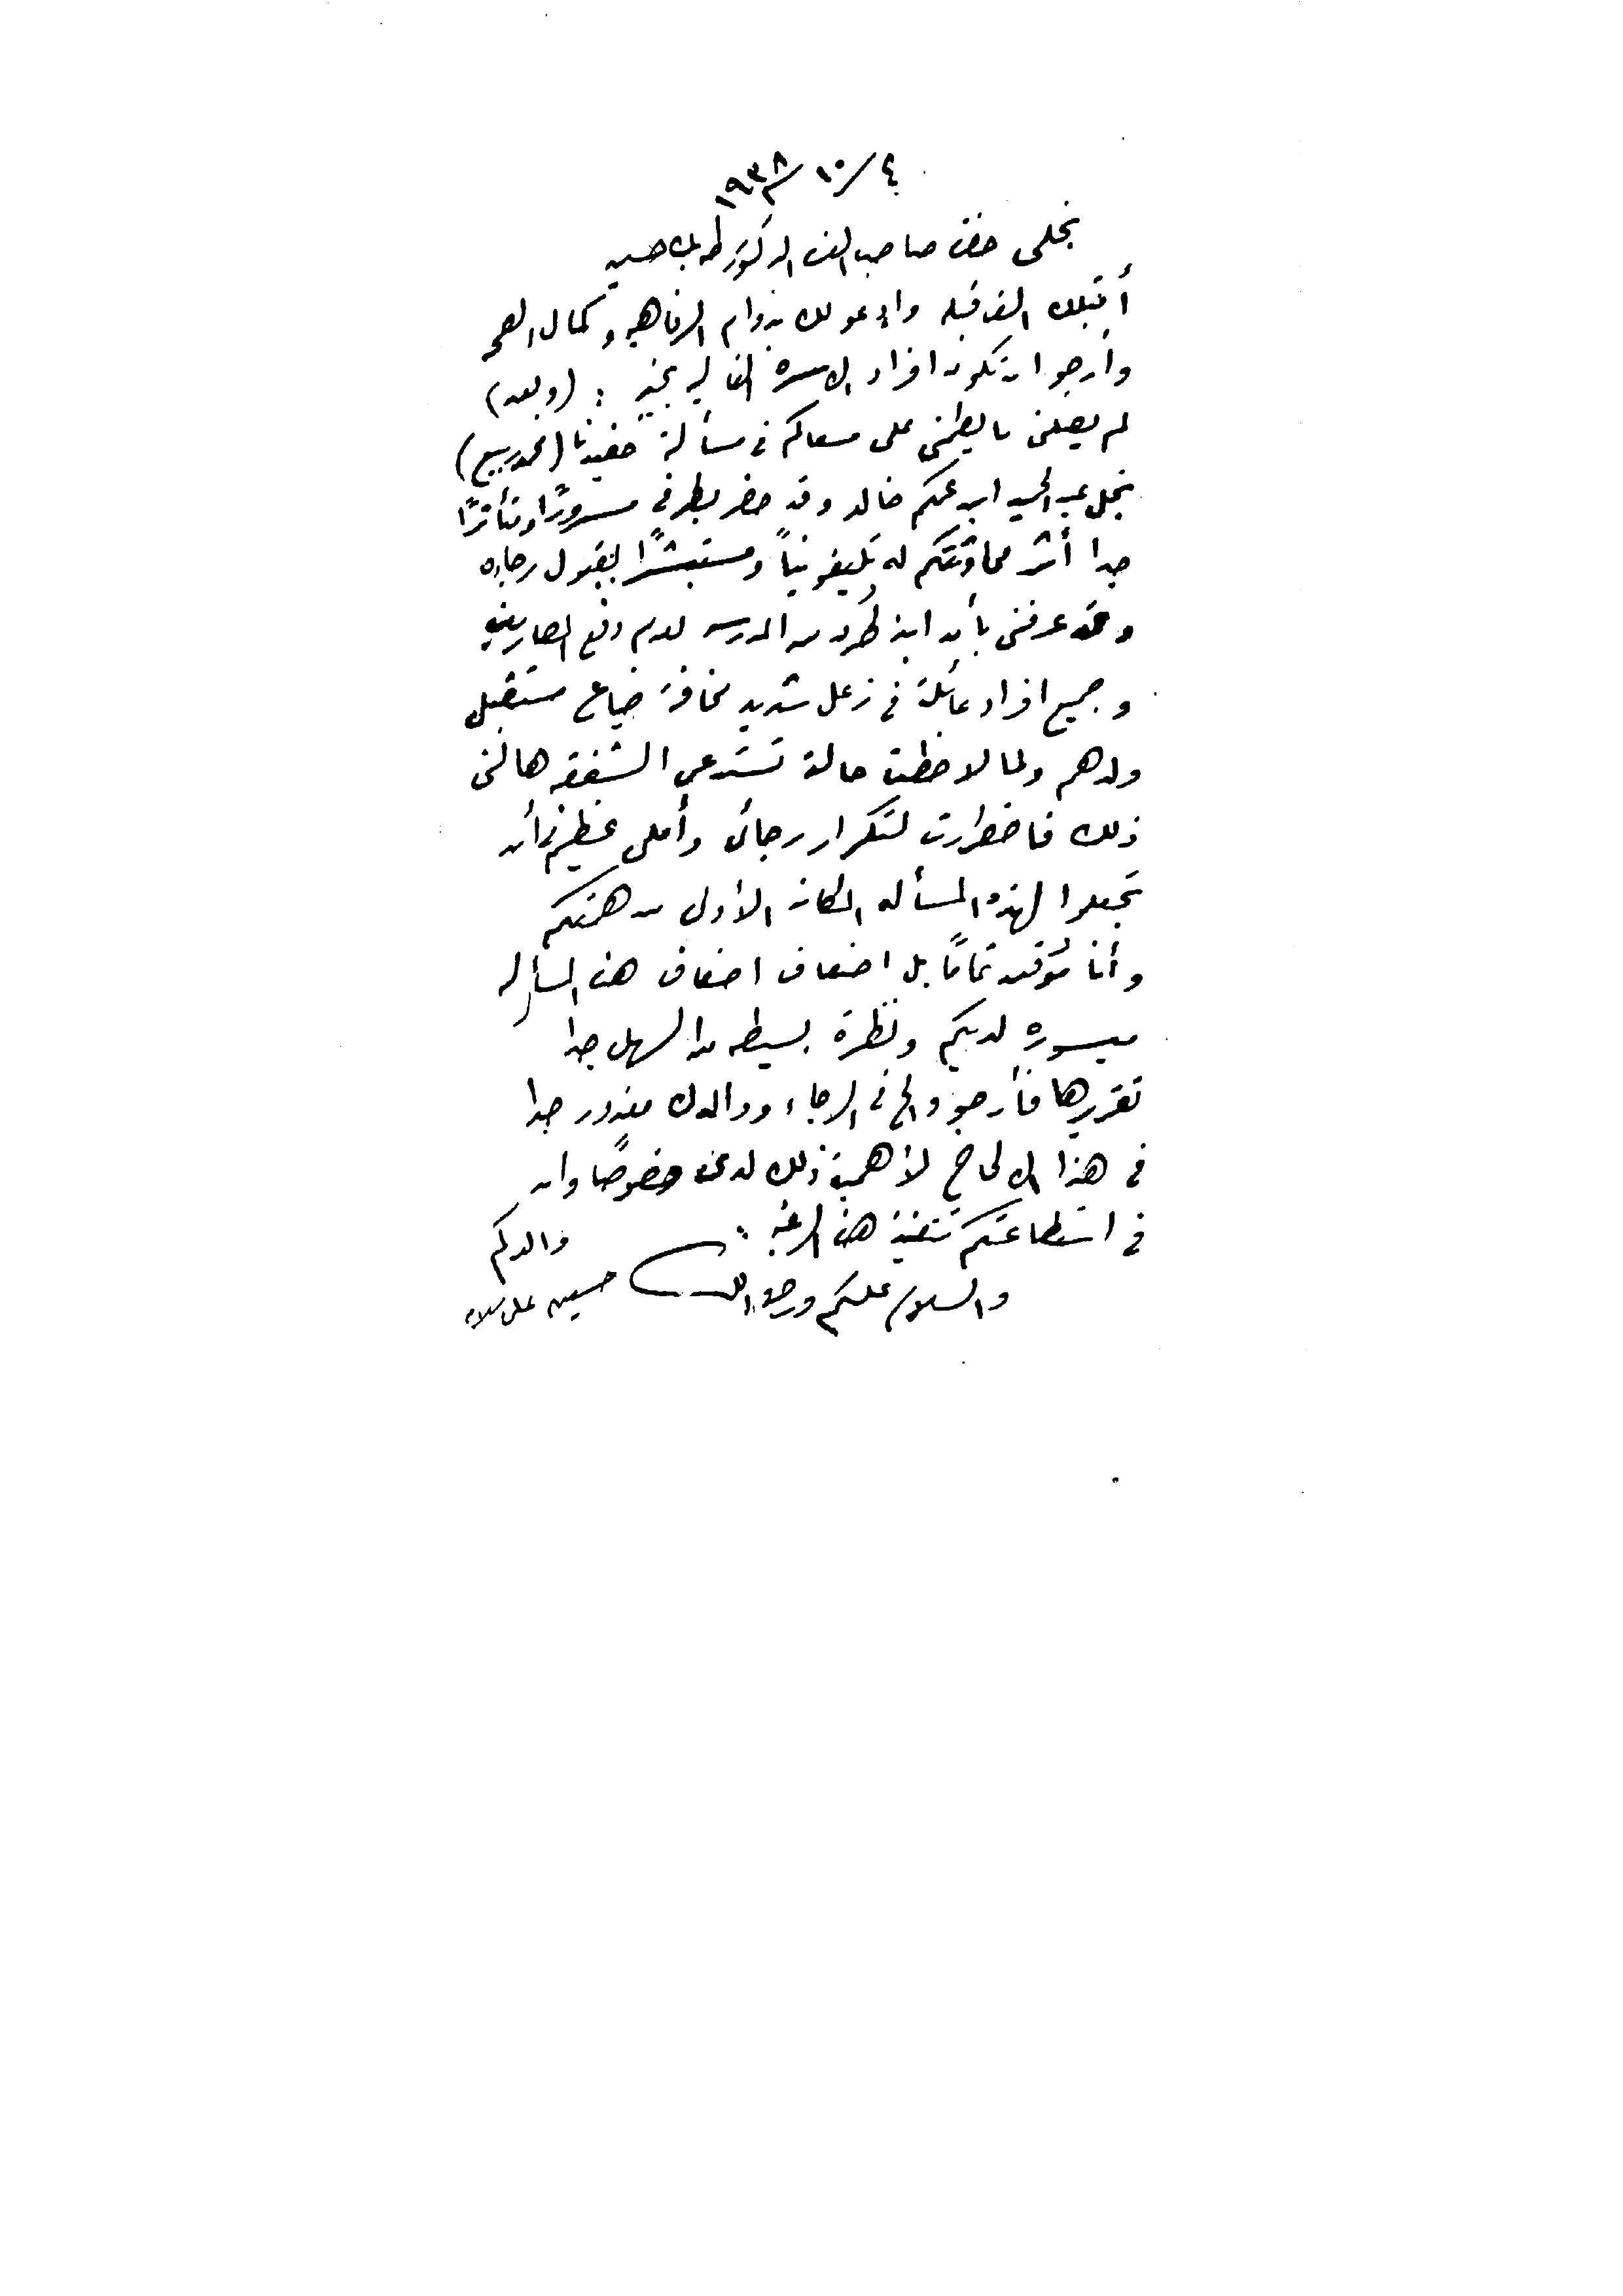 ٤/١٠/١٩٣٨
نجلى حضرة صاحب العزة الدكتور طه بك حسين
أقبلك الف قبله وادعو لك بدوام الرفاهيه وكمال الصحه
وأرجو ان تكون افراد الاسرة الغاليه بخير : (وبعد)
لم يصلنى ما يطمئنى على مسعاكم فى مسألة حفيدنا (محمد ربيع)
نجل عبد الحميد ابن عمكم خالد وقد حضر بطرفى مسرورًا ومتأثرًا
جدا أثر محادثتكم له تليفونياً ومستبشرًا بقبول رجاءه
وقد عرفنى بأن ابنه طرد من المدرسه لعدم دفع المصاريف
وجميع افراد عائلته فى زعل شديد مخافة ضياع مستقبل
ولدهم ولما لاحظت حالة تستدعى الشفقه هالنى
ذلك فاضطررت لتكرار رجائى وأملى عظيم فى أن
تجعلوا لهذه المسأله المكان الأول من همتكم
وأنا موقن تمامًا بل اضعاف اضعاف هذه المسأله
ميسوره لديكم ونظرة بسيطه من السهل جدا
تقريرها فأرجو والح فى الرجاء ووالدك معذور جدا
فى هذا الالحاح لأهمية ذلك لدى خصوصًا وان
فى استطاعتكم تنفيذ هذه الرغبه :
والسلام عليكم ورحمة الله
والدكم
حسين على سلامه